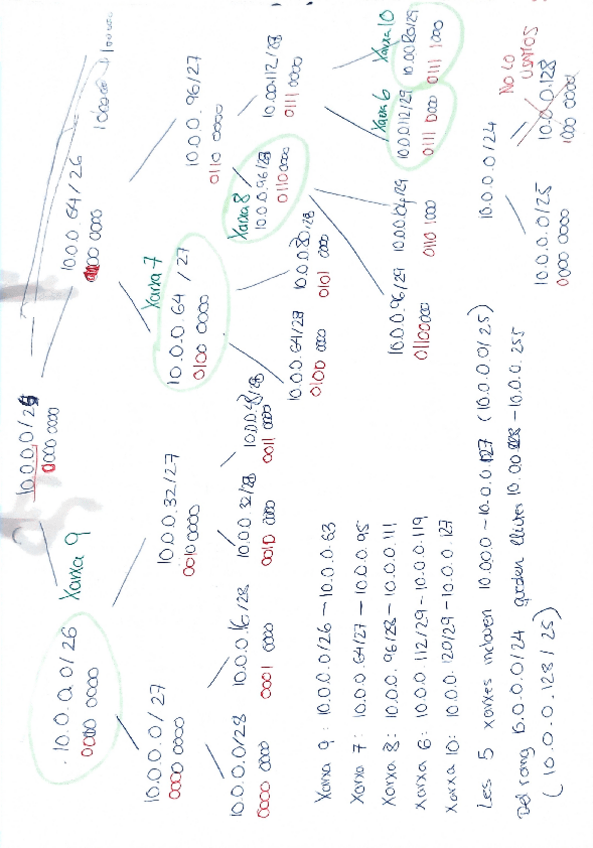 10.0.0.0/24
10.0.0.0/25
0000 0000
10.0.0.128
1000 0000
NO LO
USAMOS
10.0.0.0/25
0000 0000
10.0.0.0/26
0000 0000
Xarxa 9
10.0.0.64/26
0100 0000
10.0.0.0/27
0000 0000
10.0.0.32/27
0010 0000
10.0.0.64/27
0100 0000
Xarxa 7
10.0.0.96/27
0110 0000
10.0.0.0/28
0000 0000
10.0.0.16/28
0001 0000
10.0.0.32/28
0010 0000
10.0.0.48/28
0011 0000
10.0.0.64/28
0100 0000
10.0.0.80/28
0101 0000
Xarxa 8
10.0.0.96/28
0110 0000
10.0.0.112/28
0111 0000
10.0.0.96/29
01100000
10.0.0.104/29
0110 1000
Xarxa 6
10.0.0.112/29
0111 0000
Xarxa 10
10.0.0.120/29
0111 1000
Xarxa 9: 10.0.0.0/26 - 10.0.0.63
Xarxa 7: 10.0.0.64/27 - 10.0.0.95
Xarxa 8: 10.0.0.96/28 - 10.0.0.111
Xarxa 6: 10.0.0.112/29 - 10.0.0.119
Xarxa 10: 10.0.0.120/29 - 10.0.0.127
Les 5 xarxes inclouen 10.0.0.0 - 10.0.0.127 (10.0.0.0/25)
Del rang 10.0.0.0/24 queden lliures 10.0.0.128 - 10.0.0.255
(10.0.0.128/25)